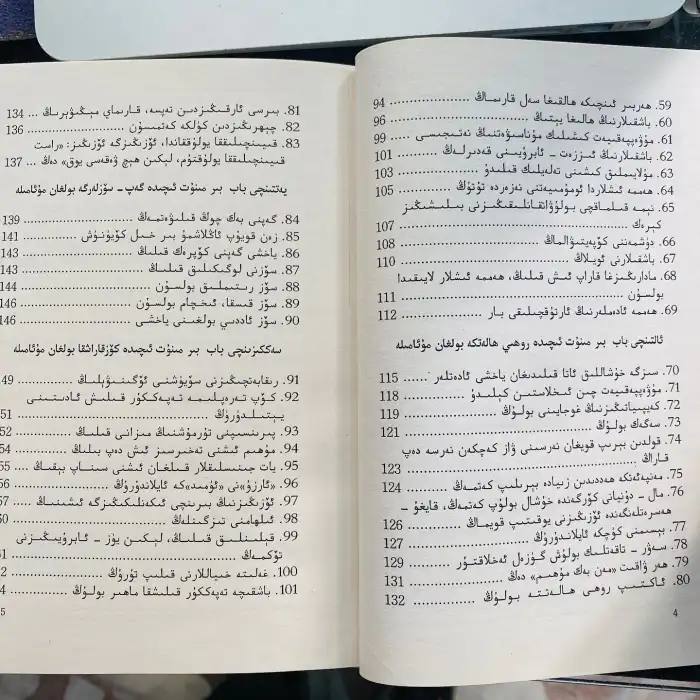 59. ھەربىر ئىنچىكە ھالقىغا سەل قارىماڭ ............ 94
60. باشقىلارنىڭ ھالىغا يېتىڭ ............ 96
61. مۇۋەپپەقىيەت كىشىلىك مۇناسىۋەتنىڭ نەتىجىسى ...... 99
62. باشقىلارنىڭ ئىززەت - ئابرۇيىنى قەدىرلەڭ ............ 101
63. مۇلايىملىق كىشىنى تەلەيلىك قىلىدۇ ............ 103
64. ھەممە ئىشلاردا ئومۇمىيەتنى نەزەردە تۇتۇڭ ............ 105
65. نېمە قىلماقچى بولۇۋاتقانلىقىڭىزنى بىلىشىڭىز
كېرەك ............ 107
66. دۈشمەننى كۆپەيتىۋالماڭ ............ 108
67. باشقىلارنى ئويلاڭ ............ 110
68. مادارىڭىزغا قاراپ ئىش قىلىڭ، ھەممە ئىشلار لايىقىدا
بولسۇن ............ 111
69. ھەممە ئادەملەرنىڭ ئارتۇقچىلىقى بار ............ 112
ئالتىنچى باب بىر مىنۇت ئىچىدە روھىي ھالەتكە بولغان مۇئامىلە
70. سىزگە خۇشاللىق ئاتا قىلىدىغان ياخشى ئادەتلەر ...... 115
71. مۇۋەپپەقىيەت چىن ئىخلاستىن كېلىدۇ ............ 118
72. كەيپىياتىڭىزنىڭ غوجايىنى بولۇڭ ............ 119
73. سەگەك بولۇڭ ............ 121
74. قولدىن بېرىپ قويغان نەرسىنى ۋاز كەچكەن نەرسە دەپ
قاراڭ ............ 123
75. مەنپەئەتكە ھەددىدىن زىيادە بېرىلىپ كەتمەڭ ............ 124
76. مال - دۇنيانى كۆرگەندە خۇشال بولۇپ كەتمەڭ، قايغۇ -
ھەسرەتلەنگەندە ئۆزىڭىزنى يوقىتىپ قويماڭ ............ 126
77. بېسىمنى كۈچكە ئايلاندۇرۇڭ ............ 127
78. سەۋر - تاقەتلىك بولۇش گۈزەل ئەخلاقتۇر ............ 129
79. ھەر ۋاقىت «مەن بەك مۇھىم» دەڭ ............ 131
80. ئاكتىپ روھىي ھالەتتە بولۇڭ ............ 132
4
81. بىرسى ئارقىڭىزدىن تەپسە، قارىماي مېڭىۋېرىڭ ... 134
82. چېھرىڭىزدىن كۈلكە كەتمىسۇن ............ 136
83. قىيىنچىلىققا يولۇققاندا، ئۆزىڭىزگە ئۆزىڭىز: «راست
قىيىنچىلىققا يولۇقتۇم، لېكىن ھېچ ۋەقەسى يوق» دەڭ ... 137
يەتتىنچى باب بىر مىنۇت ئىچىدە گەپ - سۆزلەرگە بولغان مۇئامىلە
84. گەپنى بەك چوڭ قىلىۋەتمەڭ ............ 139
85. زەن قويۇپ ئاڭلاشمۇ بىر خىل كۆيۈنۈش ............ 141
86. ياخشى گەپنى كۆپرەك قىلىڭ ............ 143
87. سۆزنى لوگىكىلىق قىلىڭ ............ 143
88. سۆز رىتىملىق بولسۇن ............ 144
89. سۆز قىسقا، ئىخچام بولسۇن ............ 146
90. سۆز ئاددىي بولغىنى ياخشى ............ 146
سەككىزىنچى باب بىر مىنۇت ئىچىدە كۆزقاراشقا بولغان مۇئامىلە
91. رىقابەتچىڭىزنى سۆيۈشنى ئۆگىنىۋېلىڭ ............ 49
92. كۆپ تەرەپلىمە تەپەككۇر قىلىش ئادىتىنى
يېتىلدۈرۈڭ ............ 51
93. پىرىنسىپنى تۇرمۇشنىڭ مىزانى قىلىڭ ............ 52
94. مۇھىم ئىشنى تەخىرسىز ئىش دەپ بىلىڭ ............ 54
95. يات جىنىسلىقلار قىلغان ئىشنى سىناپ بېقىڭ ...... 55
96. «ئارزۇ»نى «ئۈمىد»كە ئايلاندۇرۇڭ ............ 56
97. ئۆزىڭىزنىڭ بىرىنچى ئىكەنلىكىڭىزگە ئىشىنىڭ ...... 57
98. ئىلھامنى تىزگىنلەڭ ............ 60
99. قېلىنلىق قىلىڭ، لېكىن يۈز - ئابرۇيىڭىزنى
تۆكمەڭ ............ 61
100. غەلىتە خىياللارنى قىلىپ تۇرۇڭ ............ 2
101. باشقىچە تەپەككۇر قىلىشقا ماھىر بولۇڭ ............ 4
5